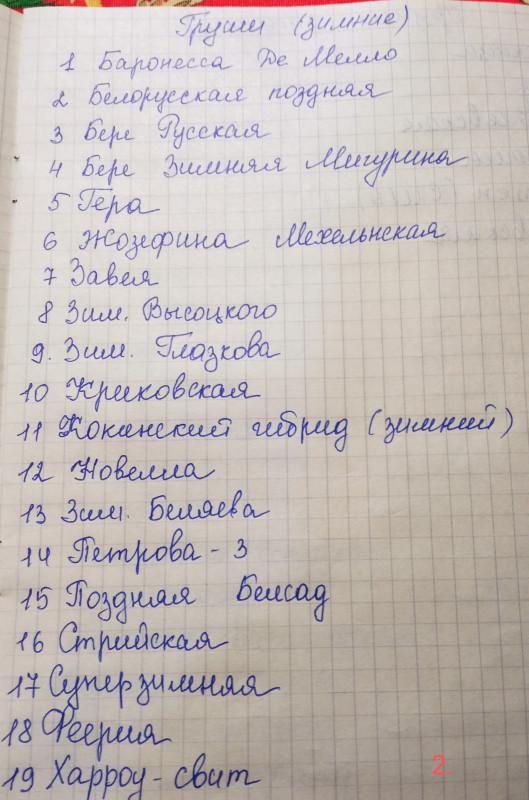 Груши (зимние)
1 Баронесса Де Мелло
2 Белорусская поздняя
3 Бере Русская
4 Бере Зимняя Мичурина
5 Гера
6 Жозефина Мехельнская
7 Завея
8 Зим. Высоцкого
9. Зим. Глазкова
10 Криковская
11 Кокинский гибрид (зимний)
12 Новелла
13 Зим. Беляева
14 Петрова - 3
15 Поздняя Белсад
16 Стрийская
17 Суперзимняя
18 Феерия
19 Харроу - свит
2